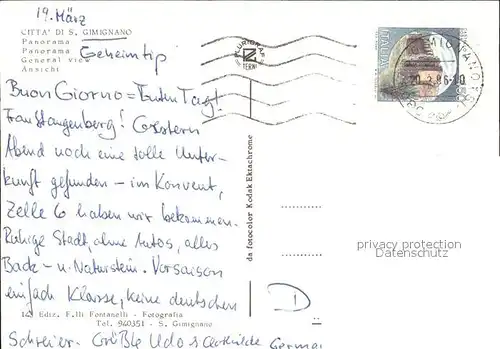 19. März
CITTA' DI S. GIMIGNANO
Panorama
Panorama
General view
Ansicht
Geheimtip
PLURIGRAF
TERNI
ITALIA
Buon Giorno = Guten Tag!
Frau Stangenberg! Gestern
Abend noch eine tolle Unter-
kunft gefunden – im Konvent,
Zelle 6 haben wir bekommen.
Ruhige Stadt, ohne Autos, alles
Back- u. Naturstein. Vorsaison
einfach Klasse, keine deutschen
Schreier. Grüßle Udo & Clothilde German
da fotocolor Kodak Ektachrome
D
privacy protection
Datenschutz
Ediz. F.lli Fontanelli - Fotografia
Tel. 940351 - S. Gimignano